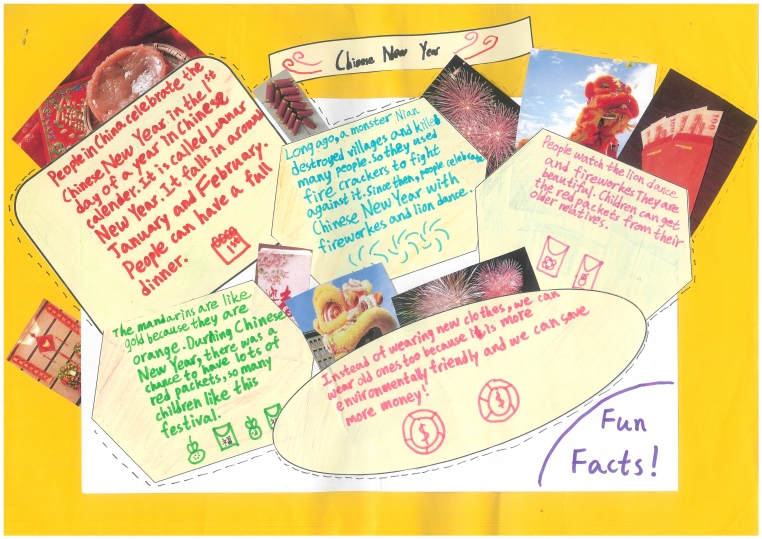 Chinese New Year
People in China celebrate the
Chinese New Year in the 1st
day of a year in Chinese
calender. It is called Lunar
New Year. It falls in around
January and February.
People can have a full
dinner.
Long ago, a monster Nian
destroyed villages and killed
many people. So they used
fire crackers to fight
against it. Since then, people celebrate
Chinese New Year with
fireworkes and lion dance.
People watch the lion dance
and fireworkes They are
beautiful. Children can get
the red packets from their
older relatives.
The mandarins are like
gold because they are
orange. Durning Chinese
New Year, there was a
chance to have lots of
red packets, so many
children like this
festival.
Instead of wearing new clothes, we can
wear old ones too because it is more
environmentally friendly and we can save
more money!
$
$
Fun
Facts!